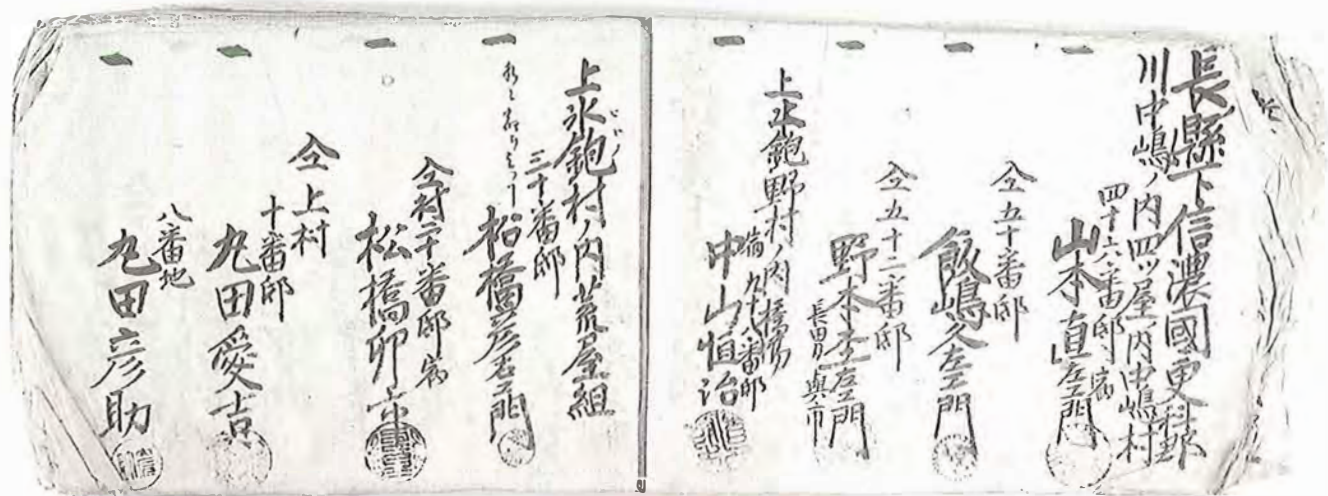 長縣下信濃國更科郡
川中嶋ノ内四ツ屋ノ内中嶋村
四十六番邸
山本直左エ門
仝五十番邸
飯嶋久左エ門
仝五十二番邸
野本杢左エ門
長男與市
上水鉋野村ノ内
九十八番邸
中山恒治
上水鉋村ノ内荒屋組
三十番邸
松橋彦右エ門
仝村二十番邸
松橋卯
仝上村
十番邸
丸田愛吉
八番地
丸田彦助